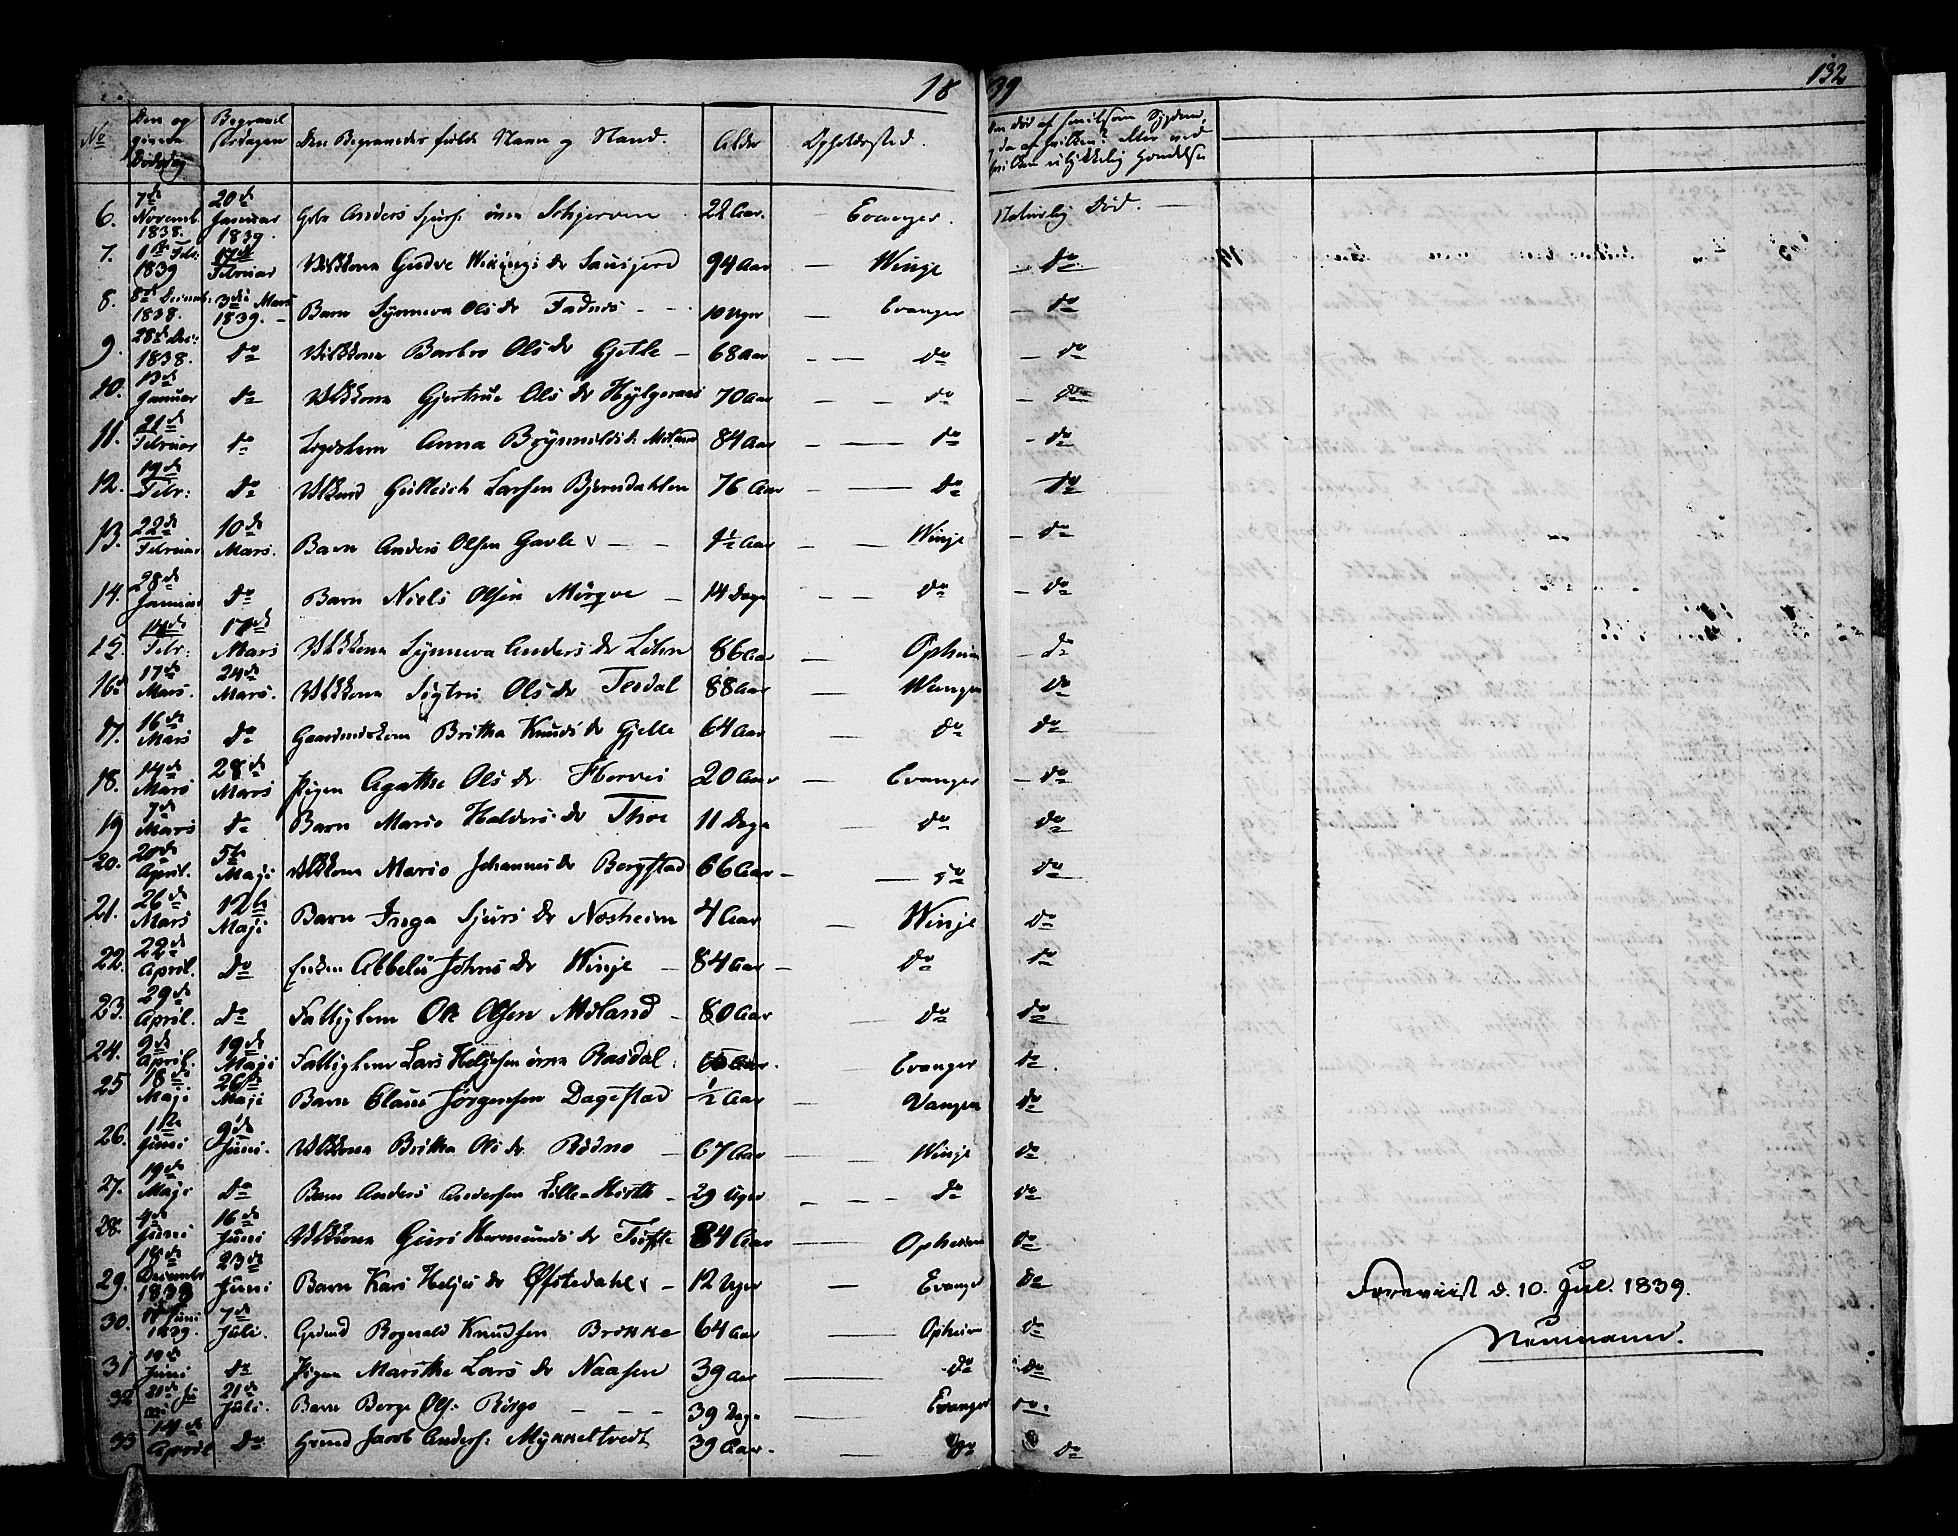 1839
132
No | Den og givne Dødsdag | Begravelsesdagen | Den Begravedes fulde Navn og Stand. | Alder | Opholdssted. | Om død af smitsom Sygdom, og da af hvilken? eller ved hvilken ulykkelig Hændelse
6. | 7de Novemb. 1838. | 20de Januar 1839. | Anders Sjurs: Schjerven | 22 Aar. | Evanger. | Naturlig Død.
7. | 1ste Febr: 1839 | 17de Februar | Vilkkona Gudve Wikings dr Saugjerd | 94 Aar | Winje | do
8. | 8de Decemb. 1838. | 3die Mars 1839. | Barn Synneva Ols dr Fadnes | 10 Uger | Evanger | do
9. | 28de Dec: 1838. | do | Vilkkona Barbro Ols dr Gjelle | 68 Aar | do | do
10. | 13de Januar | do | Vilkkona Gjertrue Ols dr Hylgenæs | 70 Aar | do | do
11. | 21de Februar | do | Legdslem Anna Brynnilds dr Miland | 84 Aar | do | do
12. | 19de Febr: | do | Gulleich Larsen Bjørndahlen | 76 Aar | do | do
13. | 22de Februar | 10de Mars. | Barn Anders Olsen Gavle | 1½ Aar | Winje | do
14. | 28de Januar | do | Barn Niels Olsen Mørqve | 14 Dage | do | do
15. | 14de Febr: | 17de Mars | Vilkkona Synneva Anders dr Løhn | 86 Aar | Opheim | do
16. | 17de Mars. | 24de Mars. | Vilkkona Sigtru Ols dr Tesdal | 88 Aar | Wangen | do
17. | 16de Mars | do | Britha Knuds dr Gjelle | 64 Aar | do | do
18. | 14de Mars | 28de Mars | Pigen Agathe Ols dr Horvei | 20 Aar | Evanger | do
19 | 7de Mars | do | Barn Mario Haldors dr Thoe | 11 Dage | do | do
20. | 20de April. | 5te Maji | Vilkkona Mario Johannes dr Bergstad | 66 Aar | do | do
21. | 26de Mars | 12te Maji | Barn Inga Sjurs dr Nosheim | 4 Aar | Winje | do
22. | 22de April. | do | Enken Abbelu Johns dr Winje | 84 Aar | do | do
23. | 29de April. | do | Fattiglem Ole Olsen Miland | 80 Aar | do | do
24. | 9de April. | 19de Maji | Fattiglem Lars Helgesen Rasdal | Aar. | Evanger | do
25 | 18de Maji | 26de Maji | Barn Claus Jørgensen Dagestad | ½ Aar | Vangen | do
26. | 1ste Juni | 9de Juni. | Vilkkona Britha Ols dr Rødno | 67 Aar | Winje | do
27. | 19de Maji | do | Barn Anders Andersen Lille-Hirth | 29 Uger | do | do
28. | 4de Juni | 16de Juni | Vilkkona Guri Hermunds dr Tufte | 84 Aar | Opheim | do
29. | 18de Decembr 1838 | 23de Juni | Barn Kari Helges dr Øfstedahl | 12 Uger | Evanger | do
30. | Juni 1839. | 7de Juli. | Grdmd Rognald Knudsen Brekke | 64 Aar | Opheim | do
31 | 19de Juni | do | Pigen Marithe Lars dr Naasen | 39 Aar | do | do
32 | 21de Juni | 21de Juli. | Barn Børge Ols: | 39 Dage | Evanger | do
33 | 14de April | do | Grmd Jacob Anders: Mykkeltvedt | 39 Aar. | do | do
Foreviist d. 10. Jul. 1839.
Neumann.